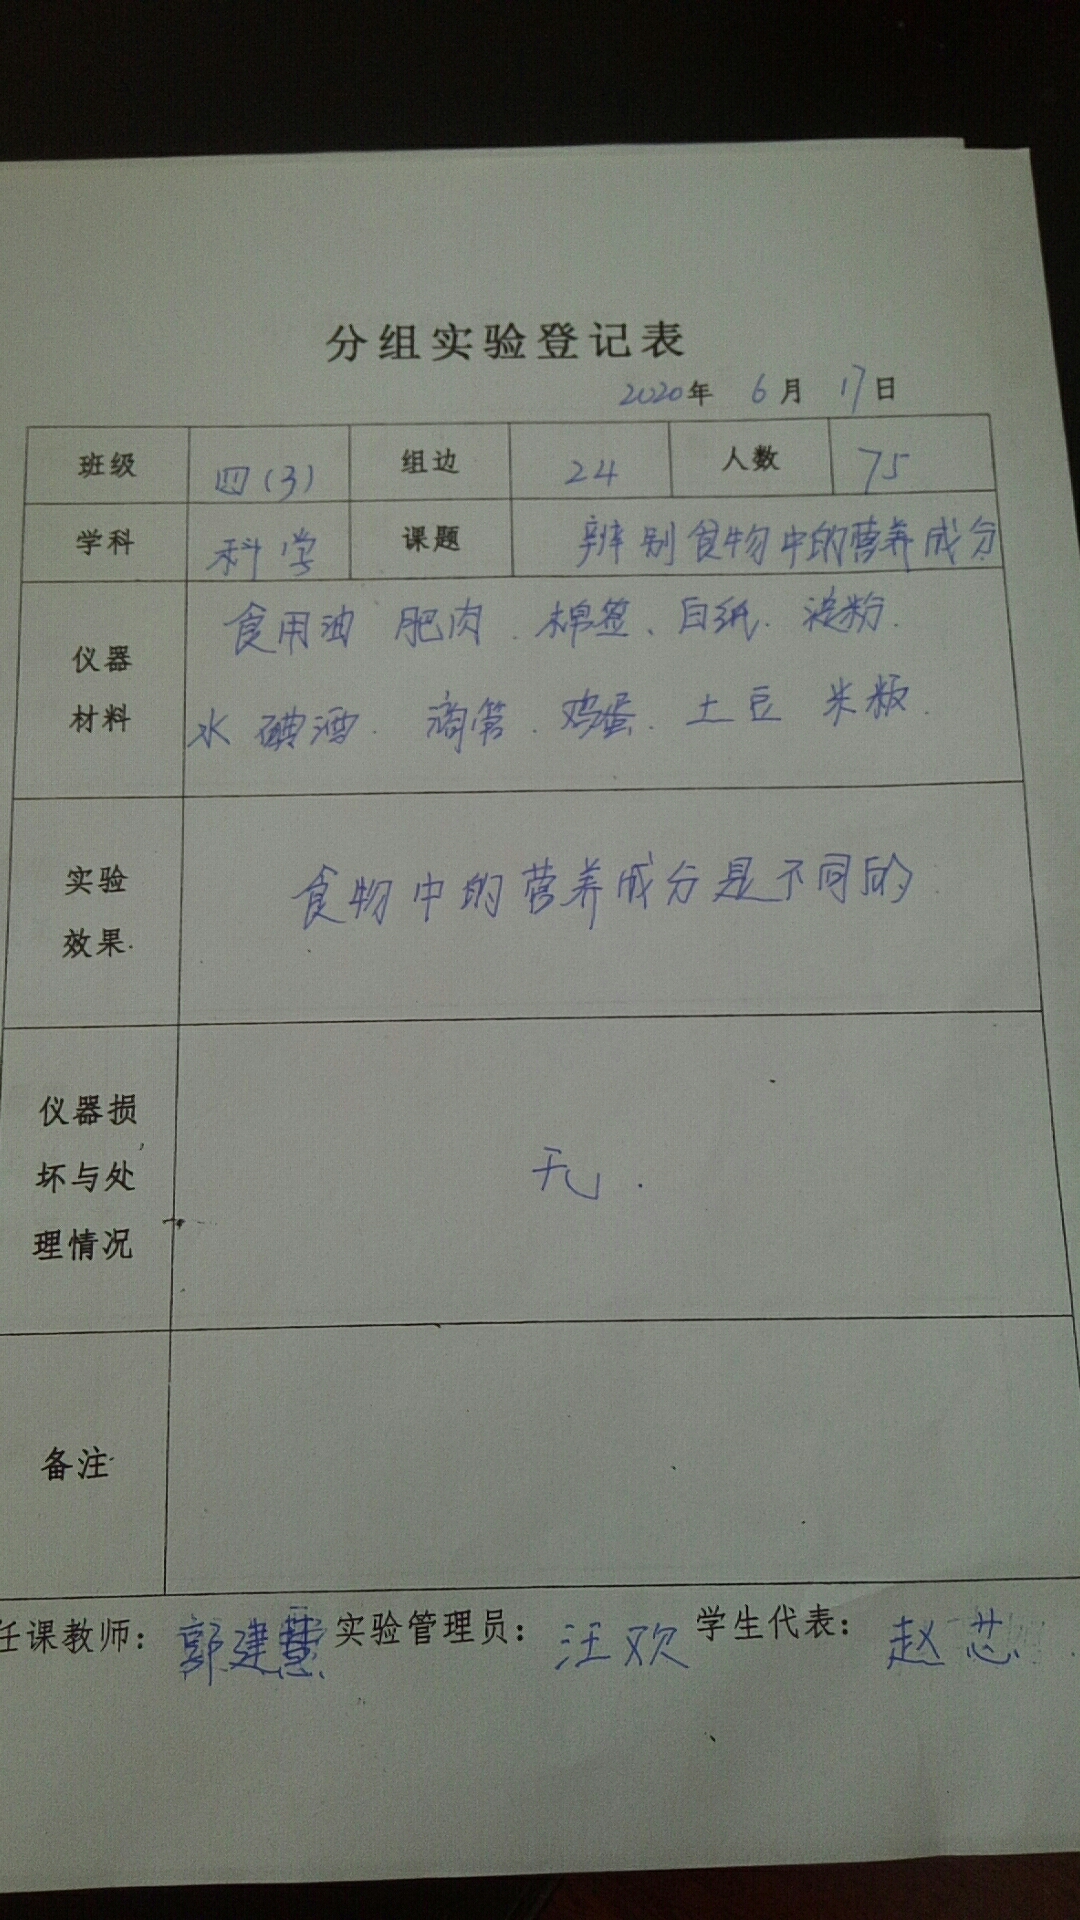 分组实验登记表
2020年 6月 17日
班级 四(3) 组边 24 人数 75
学科 科学 课题 辨别食物中的营养成分
仪器材料 食用油 肥肉、棉签、白纸、淀粉、
水 碘酒、滴管、鸡蛋、土豆 米板
实验效果 食物中的营养成分是不同的
仪器损坏与处理情况 无.
备注
任课教师: 郭建慧 实验管理员: 汪欢 学生代表: 赵芯